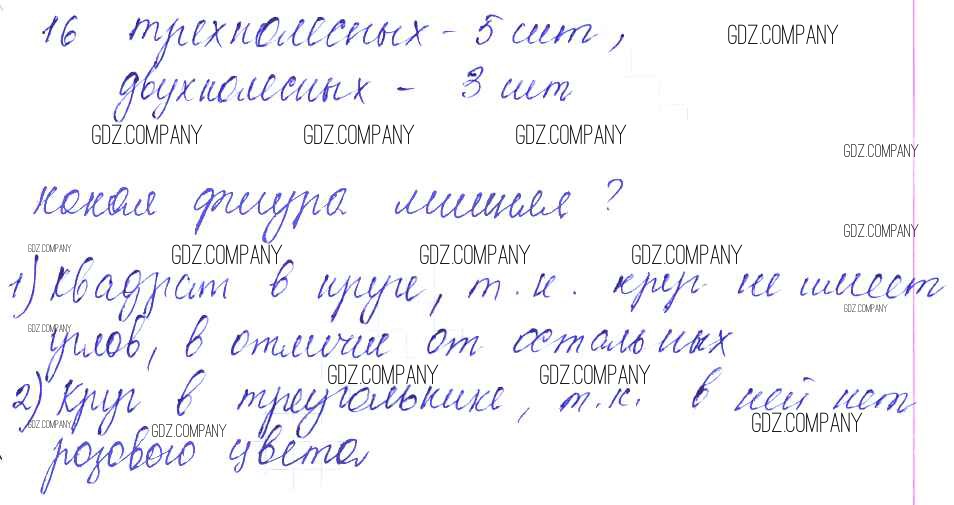 16 трехколесных - 5 шт,
GDZ.COMPANY
двухколесных - 3 шт
GDZ.COMPANY GDZ.COMPANY GDZ.COMPANY
GDZ.COMPANY
какая фигура лишняя?
GDZ.COMPANY
GDZ.COMPANY GDZ.COMPANY GDZ.COMPANY GDZ.COMPANY
1) Квадрат в круге, т.к. круг не имеет
GDZ.COMPANY
GDZ.COMPANY
углов, в отличие от остальных
GDZ.COMPANY GDZ.COMPANY
2) Круг в треугольнике, т.к. в ней нет
GDZ.COMPANY GDZ.COMPANY GDZ.COMPANY
розового цвета